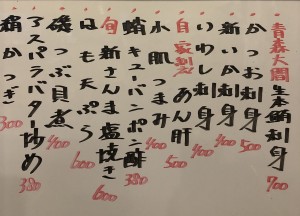 青森大間 生本鮪刺身 700
かつお刺身 500
新いか刺身 400
いわし刺身 400
自家製 あん肝 500
小肌つまみ 400
蛸キューバンポン酢 380
旬 新さんま塩焼き 600
はも天ぷら 600
磯つぶ貝煮 400
アスパラバター炒め 380
絹かつぎ 300